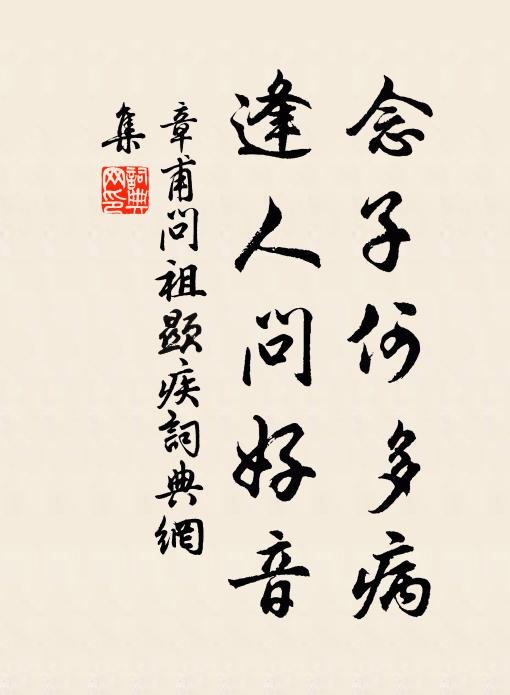 念子何多病
逢人問好音
章甫問祖顯疾詞典網
集
詞典
网印